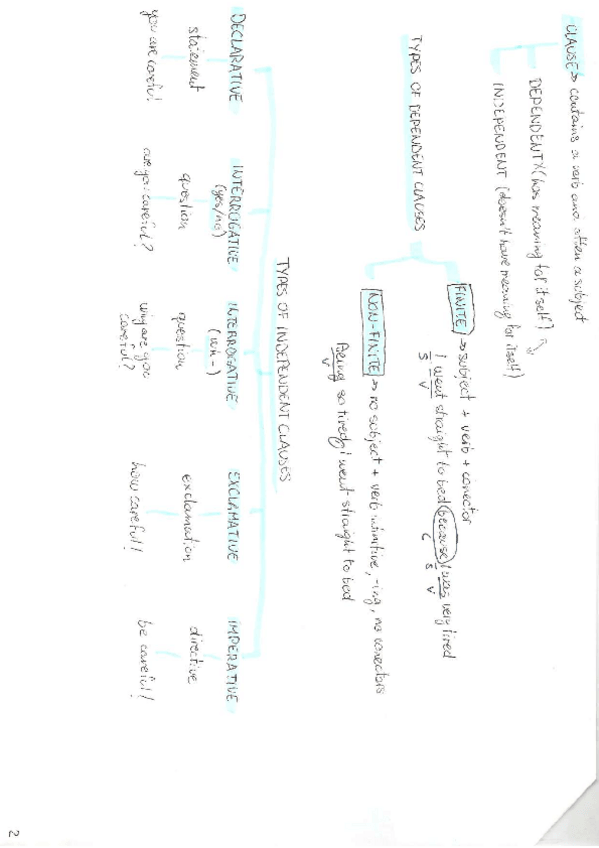 CLAUSE → contains a verb and often a subject
DEPENDENT (has meaning for itself)
INDEPENDENT (doesn't have meaning for itself)
TYPES OF DEPENDENT CLAUSES
FINITE → subject + verb + conector
I went straight to bed because I was very tired
S V C S V
NON-FINITE → no subject + verb infinitive, -ing, no conectors
Being so tired, I went straight to bed
V
TYPES OF INDEPENDENT CLAUSES
DECLARATIVE
statement
you are careful
INTERROGATIVE
(yes/no)
question
are you careful?
INTERROGATIVE
(wh-)
question
why are you
careful?
EXCLAMATIVE
exclamation
how careful!
IMPERATIVE
directive
be careful!
2